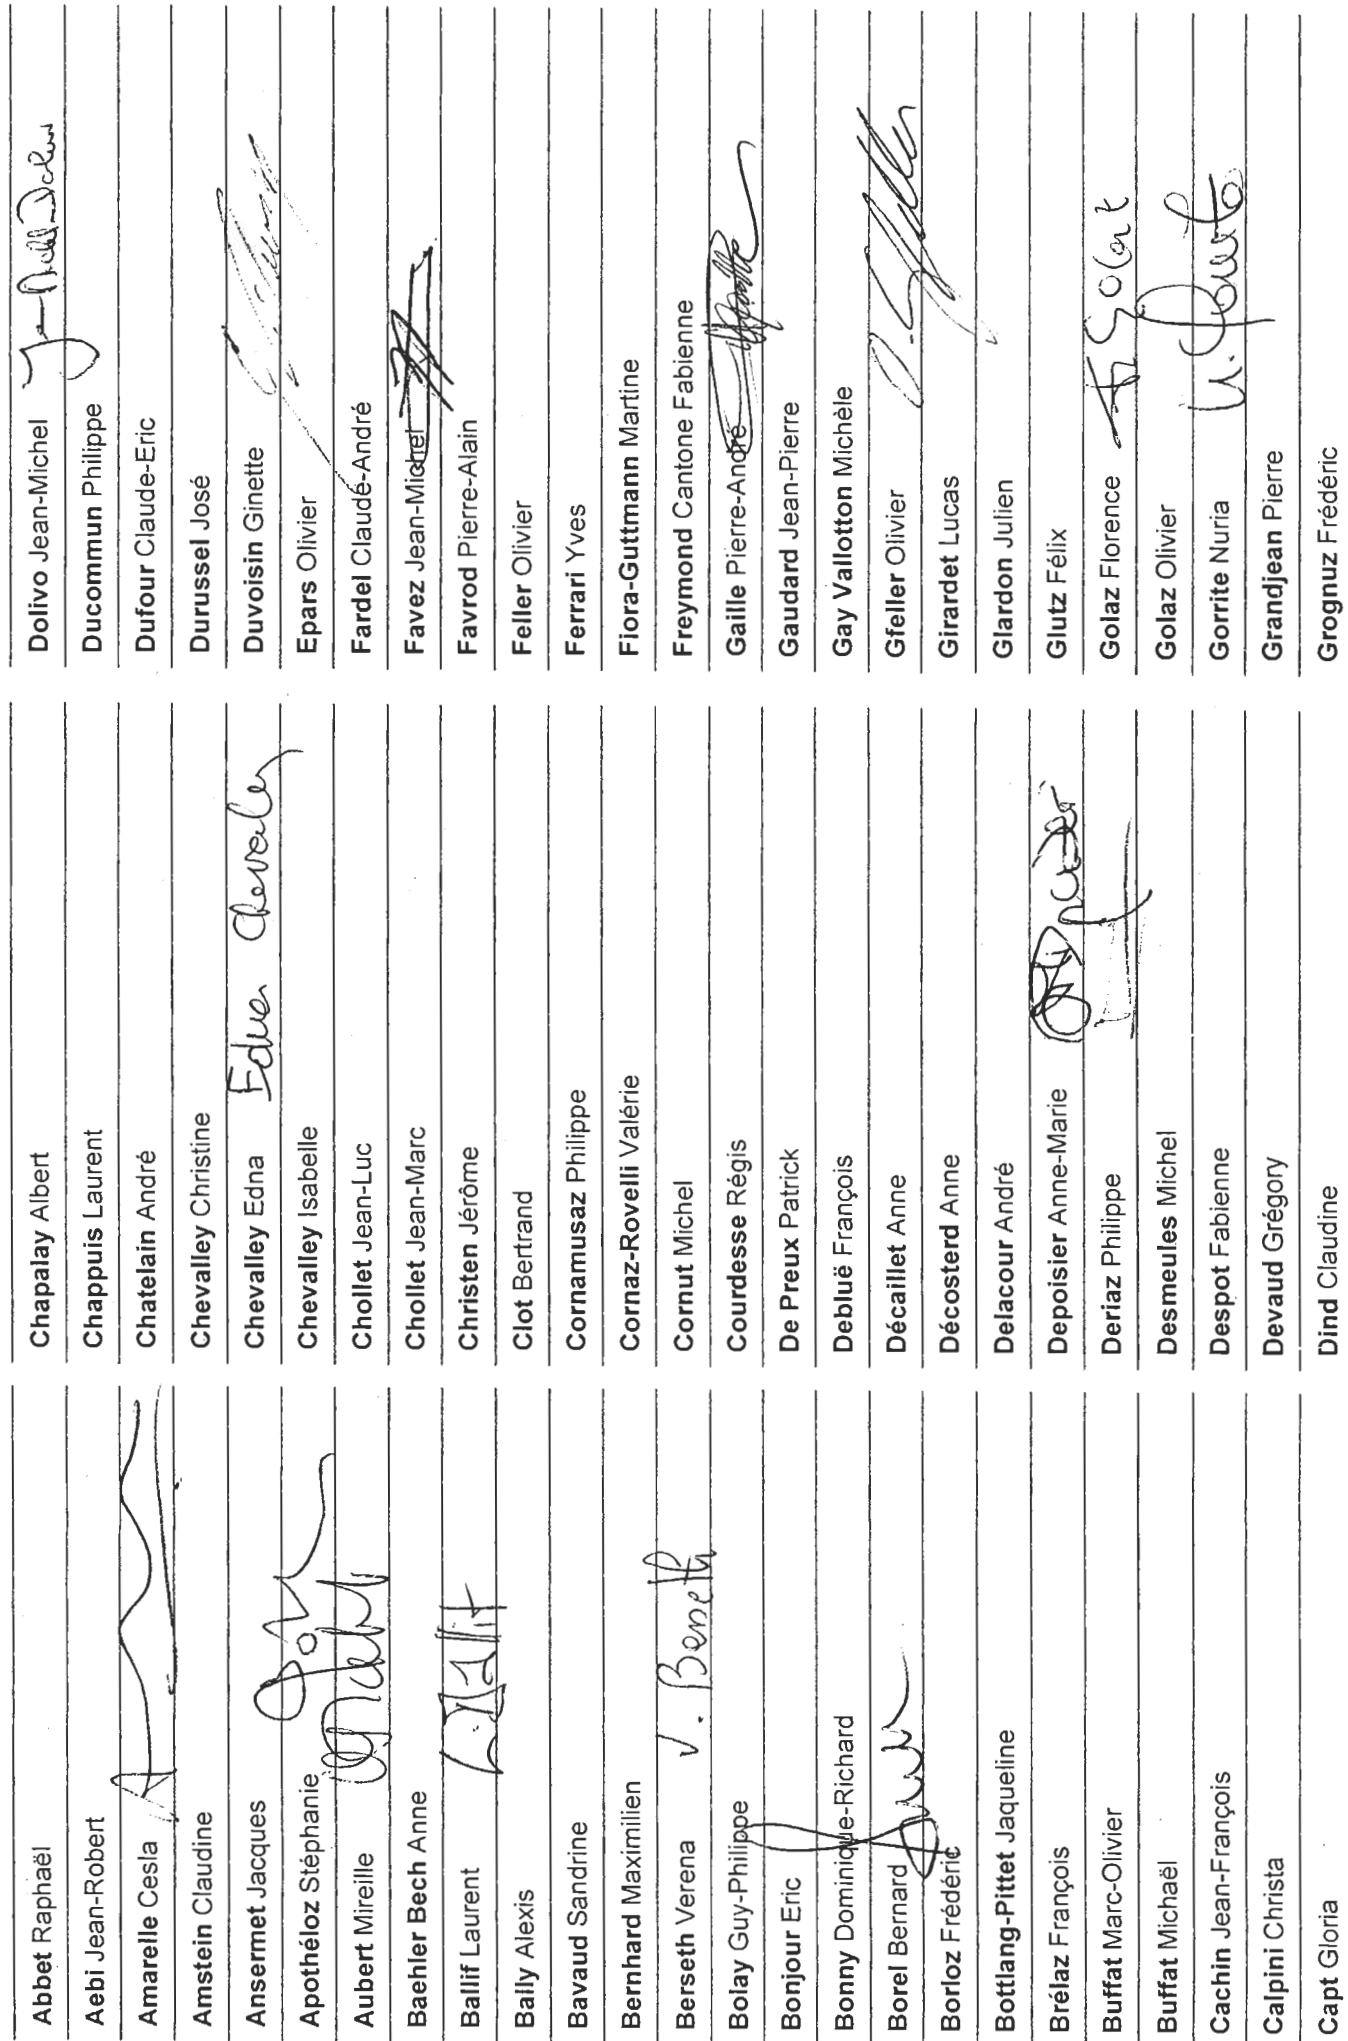 Abbet Raphaël
Aebi Jean-Robert
Amarelle Cesla
Amstein Claudine
Ansermet Jacques
Apothéloz Stéphanie
Aubert Mireille
Baehler Bech Anne
Ballif Laurent
Bally Alexis
Bavaud Sandrine
Bernhard Maximilien
Berseth Verena V. Berseth
Bolay Guy-Philippe
Bonjour Eric
Bonny Dominique-Richard
Borel Bernard
Borloz Frédéric
Bottlang-Pittet Jaqueline
Brélaz François
Buffat Marc-Olivier
Buffat Michaël
Cachin Jean-François
Calpini Christa
Capt Gloria
Chapalay Albert
Chappuis Laurent
Chatelain André
Chevalley Christine
Chevalley Edna Edna Chevalley
Chevalley Isabelle
Chollet Jean-Luc
Chollet Jean-Marc
Christen Jérôme
Clot Bertrand
Cornamusaz Philippe
Cornaz-Rovelli Valérie
Cornut Michel
Courdesse Régis
De Preux Patrick
Debluë François
Décaillet Anne
Décosterd Anne
Delacour André
Depoisier Anne-Marie
Deriaz Philippe
Desmeules Michel
Despot Fabienne
Devaud Grégory
Dind Claudine
Dolivo Jean-Michel
Ducommun Philippe
Dufour Claude-Eric
Durussel José
Duvoisin Ginette
Epars Olivier
Fardel Claude-André
Favez Jean-Michel
Favrod Pierre-Alain
Feller Olivier
Ferrari Yves
Fiora-Guttmann Martine
Freymond Cantone Fabienne
Gaille Pierre-André
Gaudard Jean-Pierre
Gay Vallotton Michèle
Gfeller Olivier
Girardet Lucas
Glardon Julien
Glutz Félix
Golaz Florence
Golaz Olivier
Gorrite Nuria
Grandjean Pierre
Grognuz Frédéric